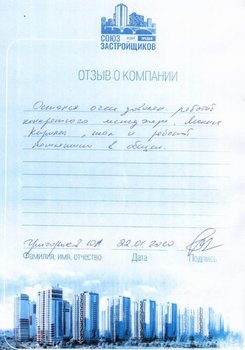 СОЮЗ
ЗАСТРОЙЩИКОВ
ОТЗЫВ О КОМПАНИИ
Остался очень доволен работой
конкретного менеджера,
Карины, так и работой
компании в общем.
Григорьев ЮА 22.01.2020
Фамилия, имя, отчество Дата Подпись